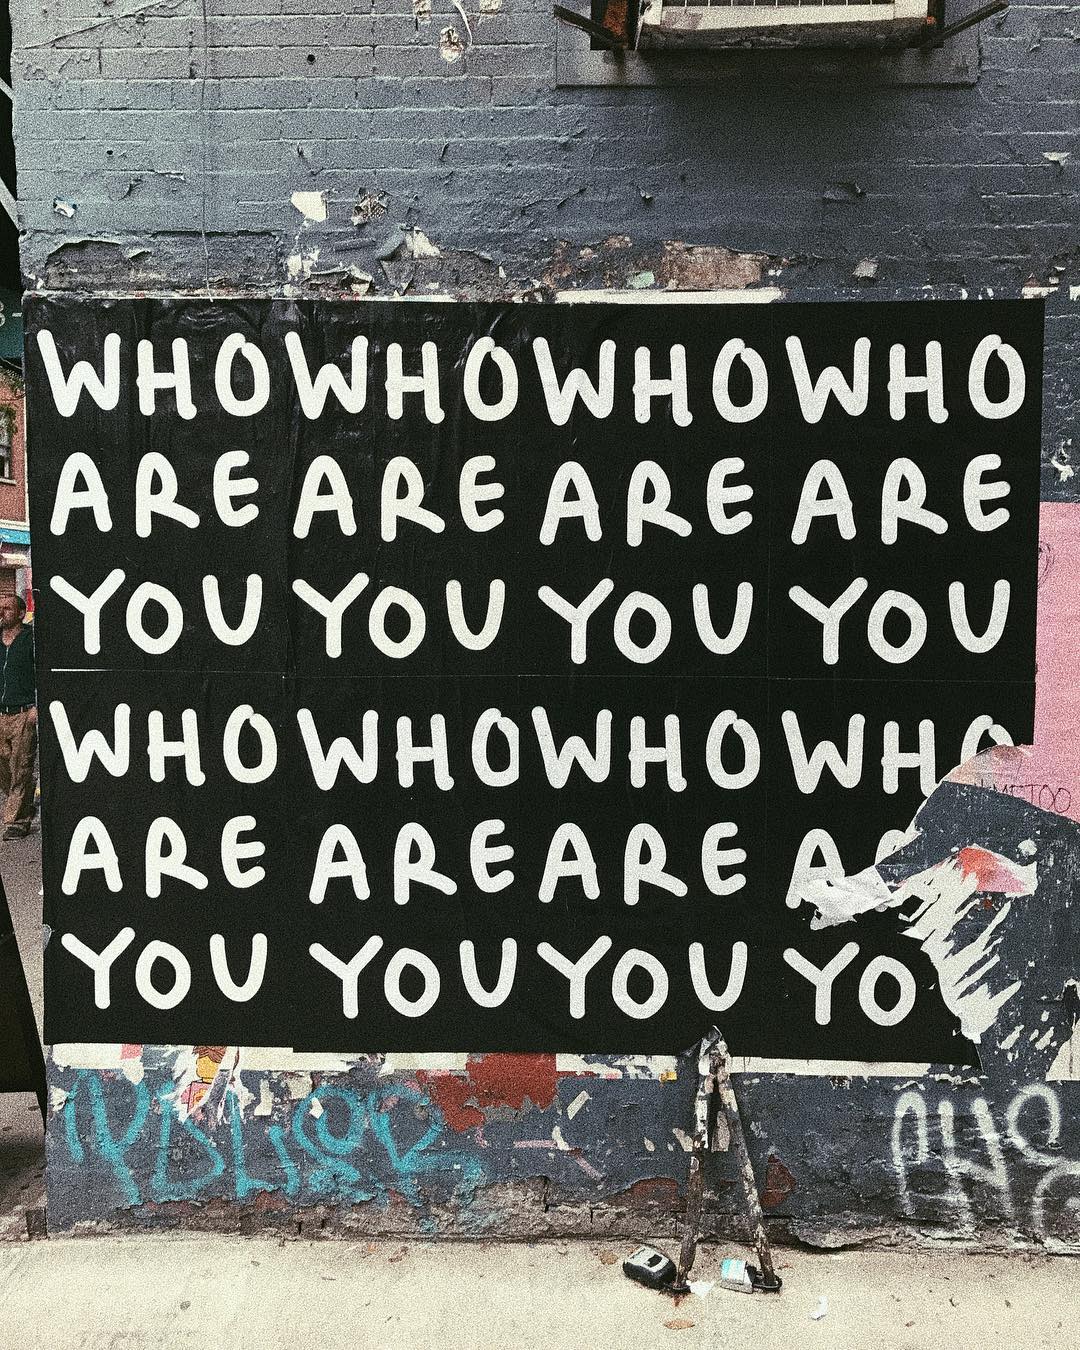 WHO WHO WHO WHO
ARE ARE ARE ARE
YOU YOU YOU YOU
WHO WHO WHO WHO
METOO
ARE ARE ARE A
YOU YOU YOU YO